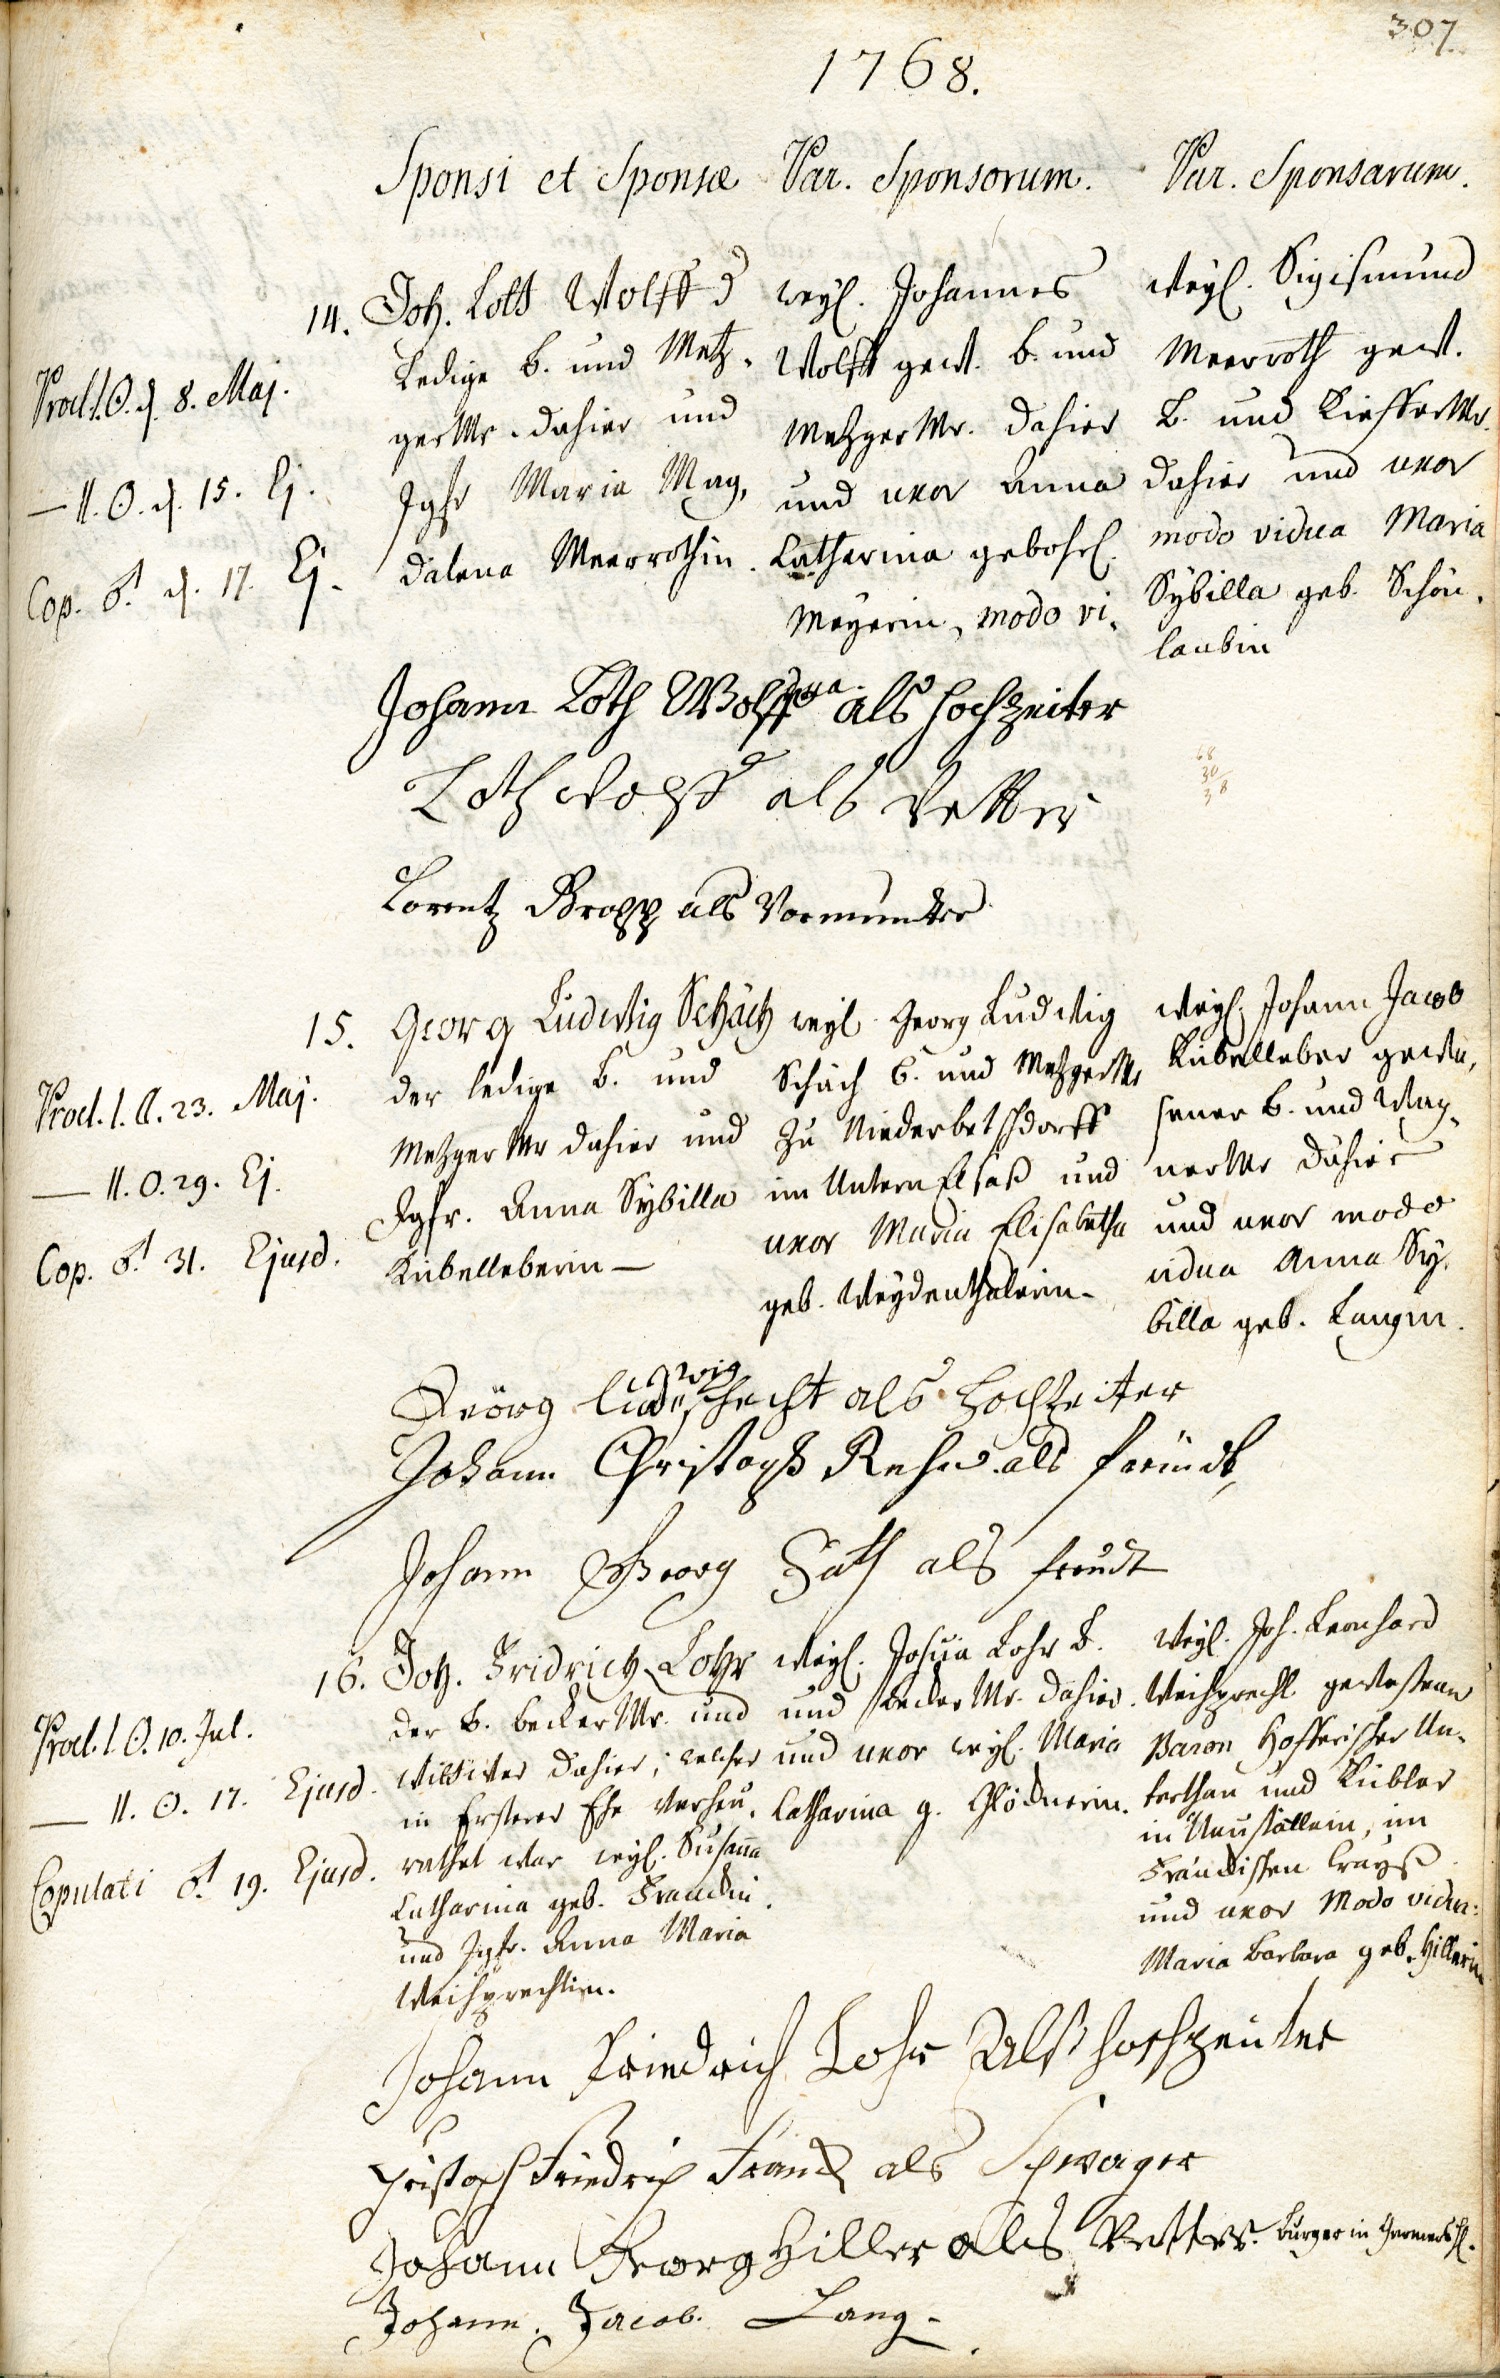 307
1768.
Sponsi et Sponsæ
Par. Sponsorum.
Par. Sponsarum.
Procl. I. ⊙. d. 8. Maj.
— II. ⊙. d. 15. Ej.
Cop. ♂ d. 17. Ej.
14. Joh. Lott Wolff d
Ledige b. und Metz-
ger Mr. dahier und
Jgfr Maria Mag,
dalena Meerrothin.
weyl. Johannes
Wolff gew. b. und
Metzger Mr. dahier
und uxor Anna
Catharina gebohrl.
Meyerin, modo vi,
dua.
weyl. Sigismund
Meerroth gew.
b. und Kieffer Mr.
dahier und uxor
modo vidua Maria
Sybilla geb. Schön,
laubin
Johann Loth Wolff als Hochzeiter
Loth Wolff als Vetter
Lorentz als Vormunder
68
30
3 8
Procl. I. 23. Maj.
— II. ⊙. 29. Ej.
Cop. ♂ 31. Ejusd.
15. Georg Ludwig Schäch
der ledige b. und
Metzger Mr dahier und
Jgfr. Anna Sybilla
Kübelleberin —
weyl. Georg Ludwig
Schäch b. und Metzger Mr
zu Niederbetschdorff
im Untern Elsaß und
uxor Maria Elisabetha
geb. Weydenthalerin.
weyl. Johann Jacob
Kübelleber gewe,
sener b. und Wag,
ner Mr dahier
und uxor modo
vidua Anna Sy,
billa geb. Langin.
Geörg Ludwig schecht als Hochzeiter
Johann Christoph als freündt,
Johann Georg als freudt
Procl. I. ⊙. 10. Jul.
— II. ⊙. 17. Ejusd.
Copulati ♂ 19. Ejusd.
16. Joh. Fridrich Lohr
der b. becker Mr. und
Wittiwer dahier, welcher
in Ersterer Ehe verheu,
rathet war weyl. Susanna
Catharina geb. Franckin.
und Jgfr. Anna Maria
Weihprechtin.
weyl. Josua Lohr b.
und becker Mr. dahier.
und uxor weyl. Maria
Catharina g. Glöcknerin.
weyl. Joh. Leonhard
Weihprecht gewesener
Baron Hofferischer Un,
terthan und Kübler
in Neustättlein, im
Fränckischen Crayß
und uxor Modo vidua:
Maria Barbara geb. Hillerin
Johann Friedrich Lohr Alß hochzeiter
Christoph Friedrich Franck als Schwager
Johann Georg Hiller als Vetter. burger in
Johann. Jacob. Lang.